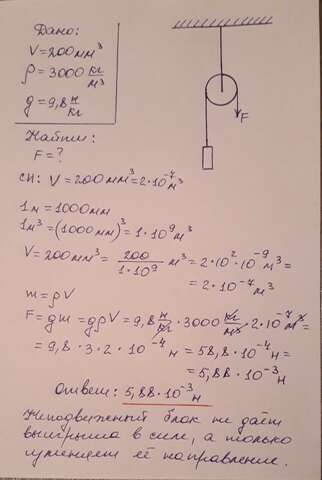 Дано:
V = 200 мм³
ρ = 3000 кг/м³
g = 9,8 н/кг
Найти:
F = ?
F
СИ: V = 200 мм³ = 2·10⁻⁷ м³
1м = 1000 мм
1м³ = (1000 мм)³ = 1·10⁹ м³
V = 200 мм³ = 200/1·10⁹ м³ = 2·10²·10⁻⁹ м³ =
= 2·10⁻⁷ м³
m = ρV
F = gm = gρV = 9,8 н/кг · 3000 кг/м³ · 2·10⁻⁷ м³ =
= 9,8 · 3 · 2 · 10⁻⁴ н = 58,8 · 10⁻⁴ н =
= 5,88 · 10⁻³ н
Ответ: 5,88·10⁻³ н
Неподвижный блок не даёт
выигрыша в силе, а только
изменяет её направление.